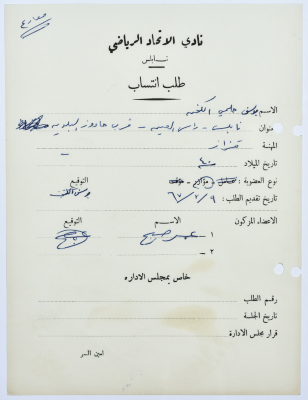 نادي الاتحاد الرياضي
نابلس
طلب انتساب
الاسم يوسف حلمي
عنوان نابلس - راس العين - قرب
المهنة
تاريخ الميلاد
نوع العضوية :
تاريخ تقديم الطلب : ٦٧/٢/٩ التوقيع
الاعضاء المزكون الاسم التوقيع
١ - عمر
٢ -
خاص بمجلس الاداره
رقم الطلب
تاريخ الجلسة
قرار مجلس الادارة
امين السر